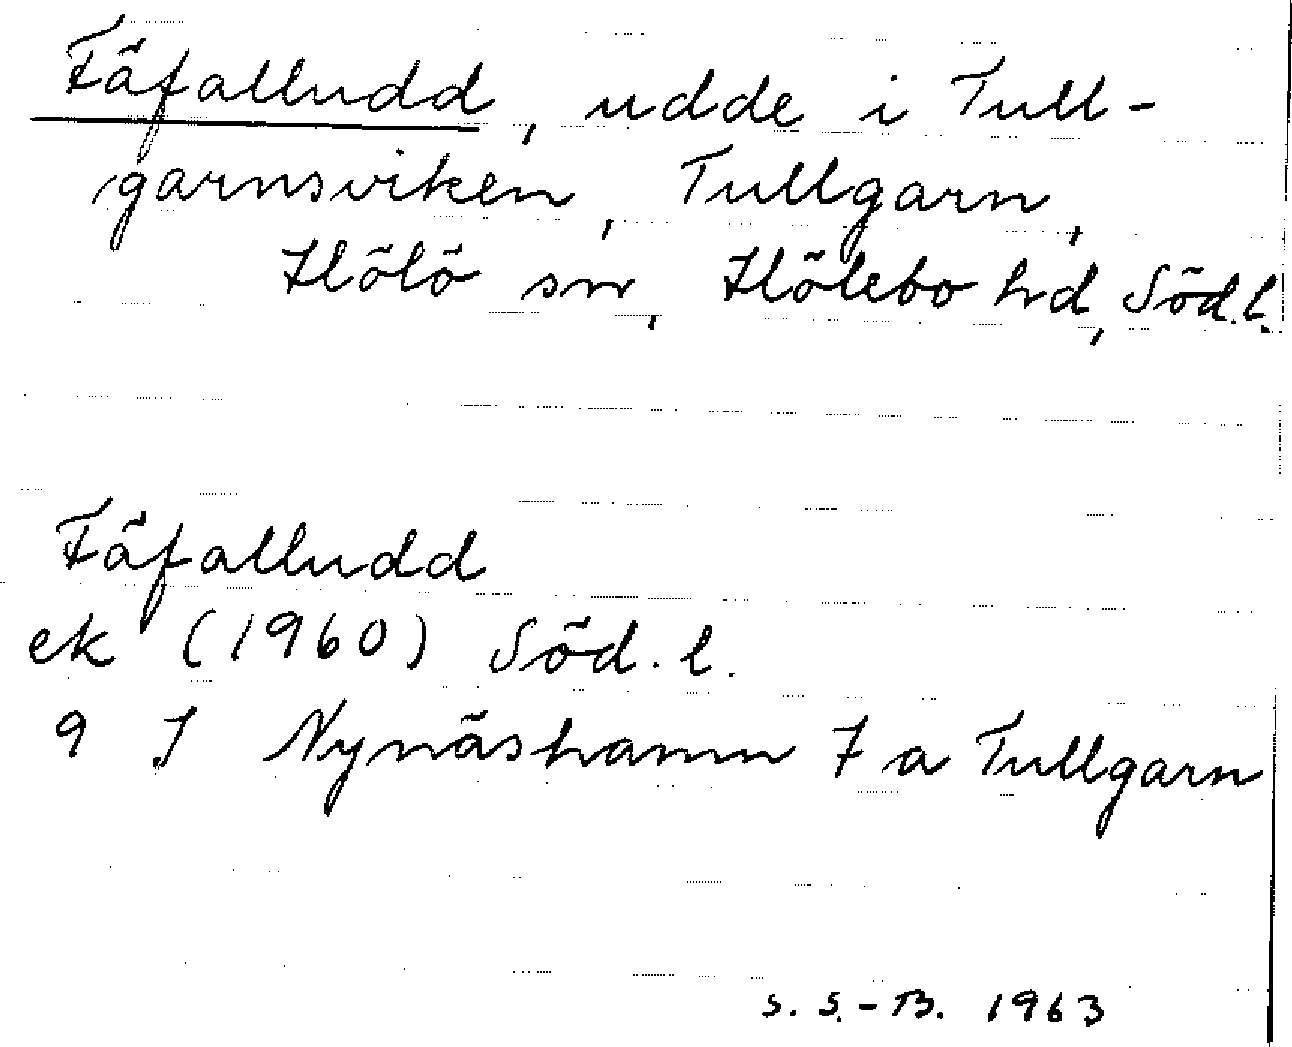 Fäfalludd, udde i Tull-
garnsviken, Tullgarn,
Hölö sn, Hölebo hd, Söd.l.
Fäfalludd
ek (1960) Söd.l.
9 I Nynäshamn 7 a Tullgarn
S. S.-B. 1963